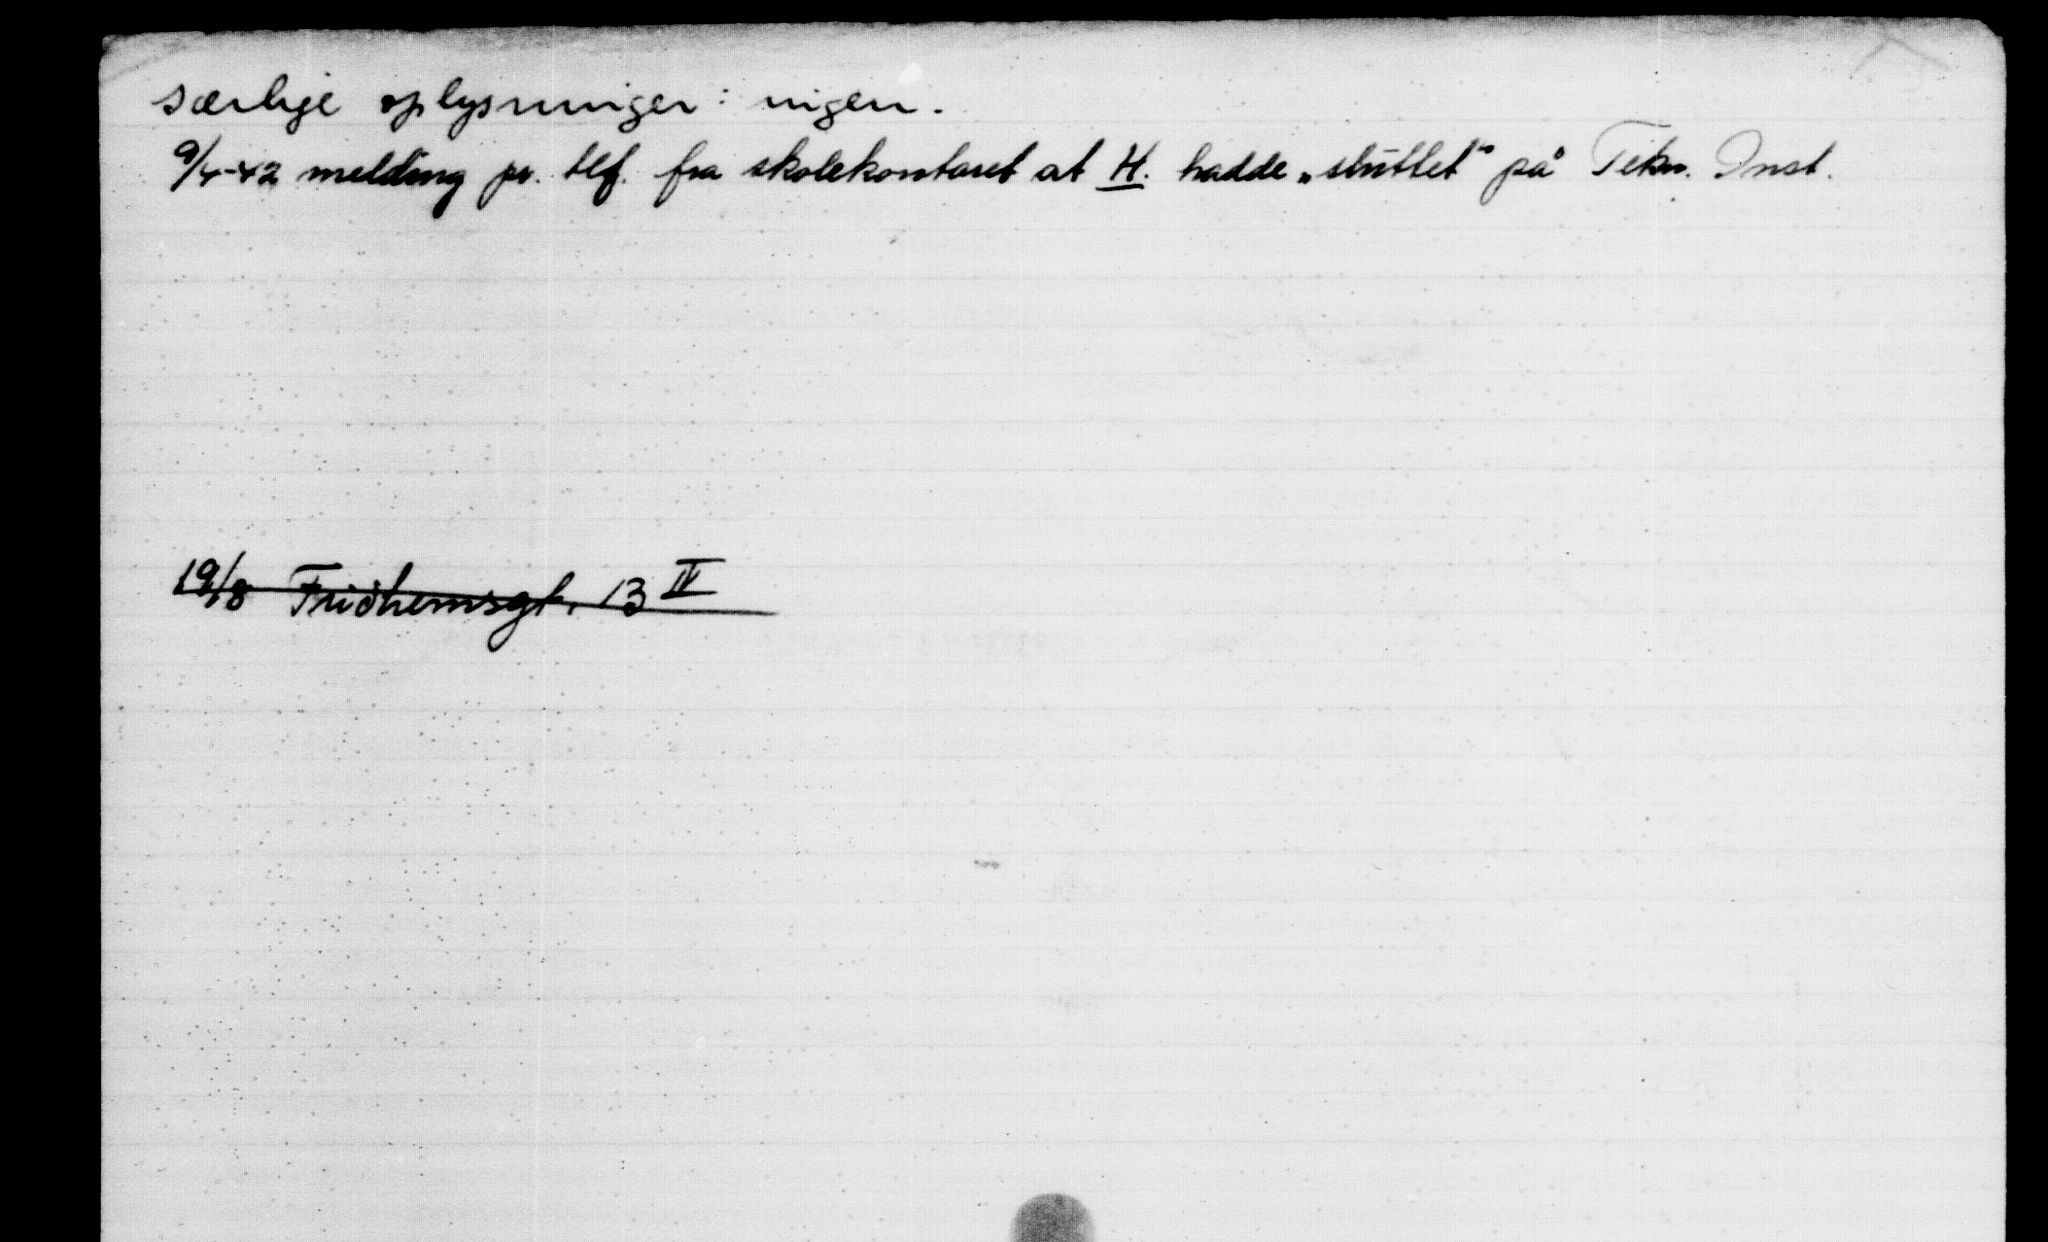 særlige oplysninger: ingen.
9/4-42 melding pr. tlf. fra skolekontoret at H. hadde „sluttet" på Tekn. Inst.
19/8 Fridhemsgt. 13 IV